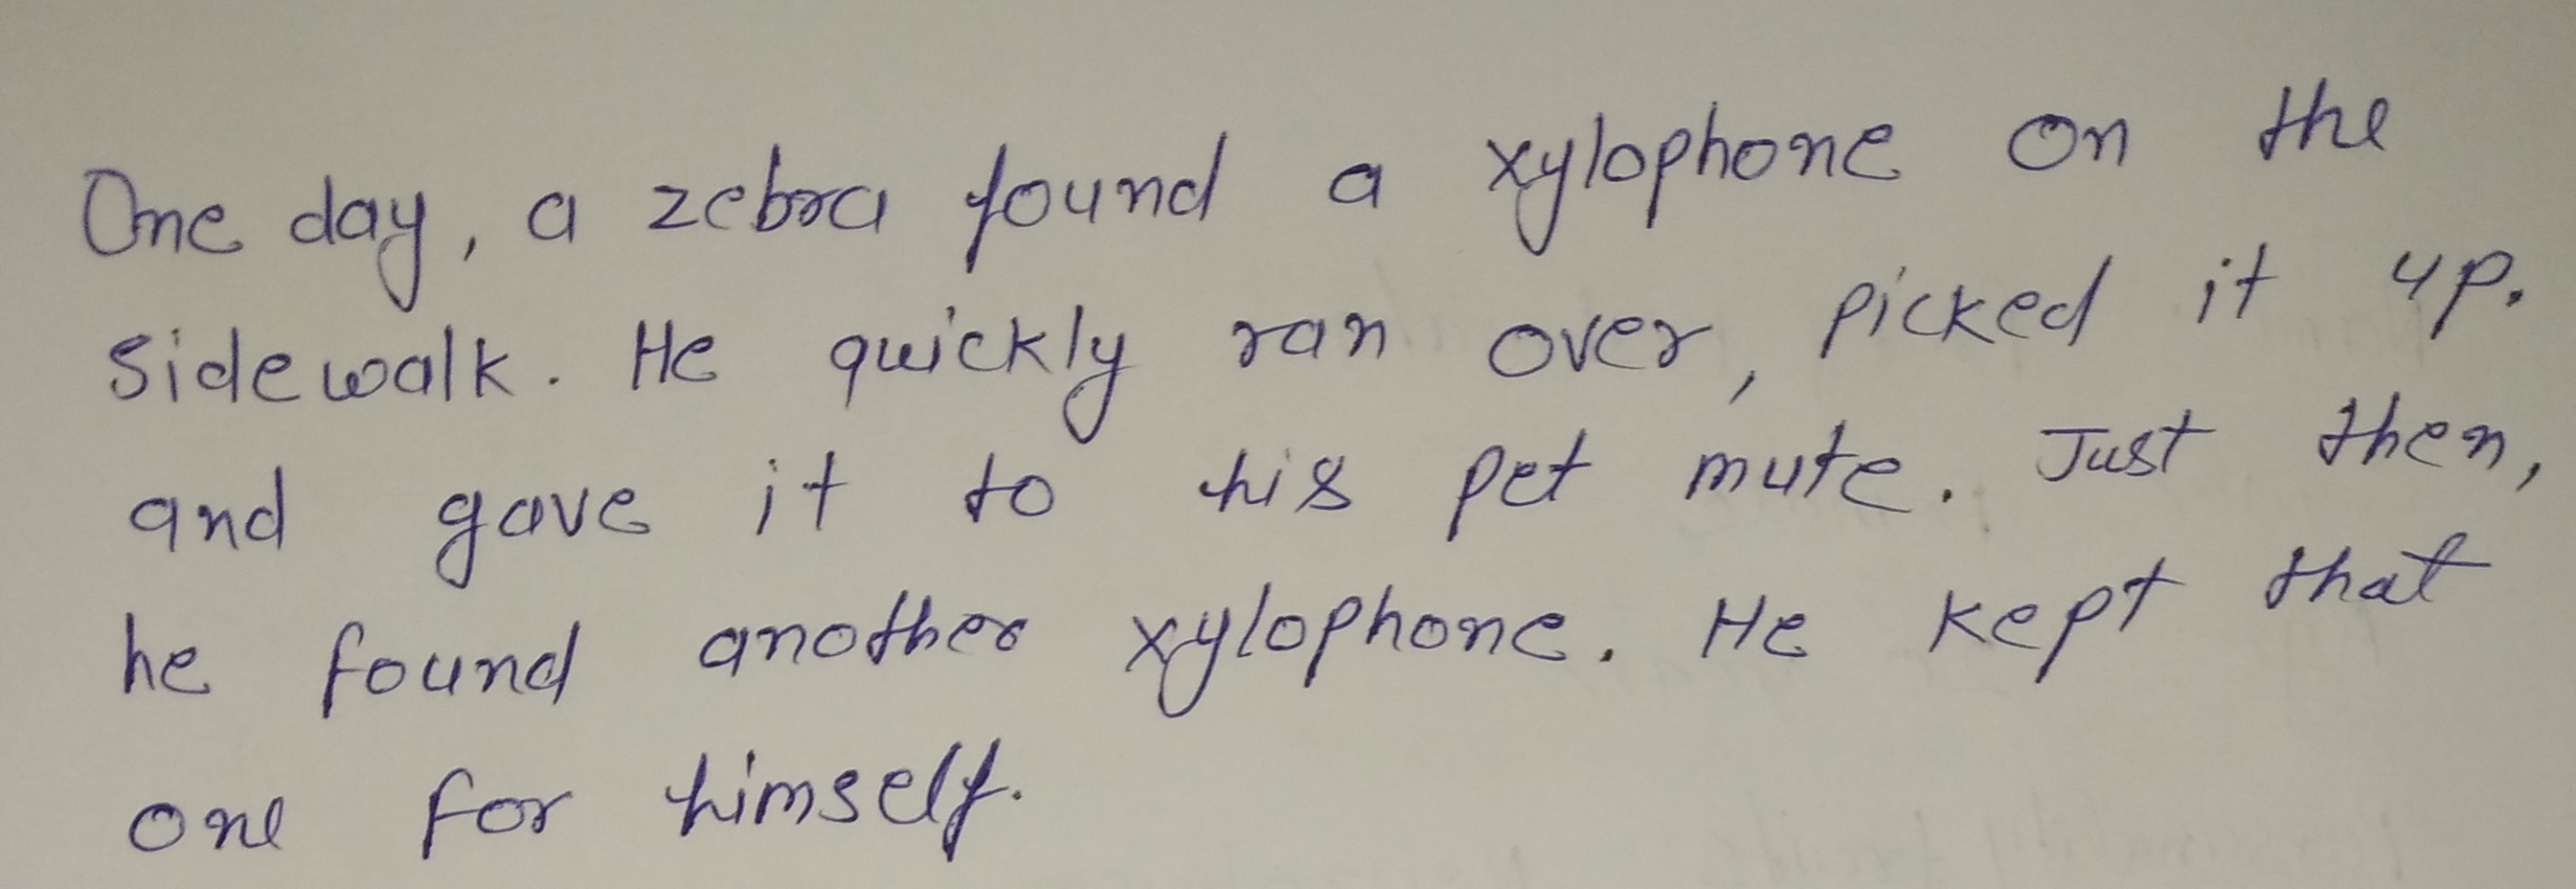 One day, a zebra found a xylophone on the
sidewalk. He quickly ran over, picked it up.
and gave it to his pet mute. Just then,
he found another xylophone. He kept that
one for himself.